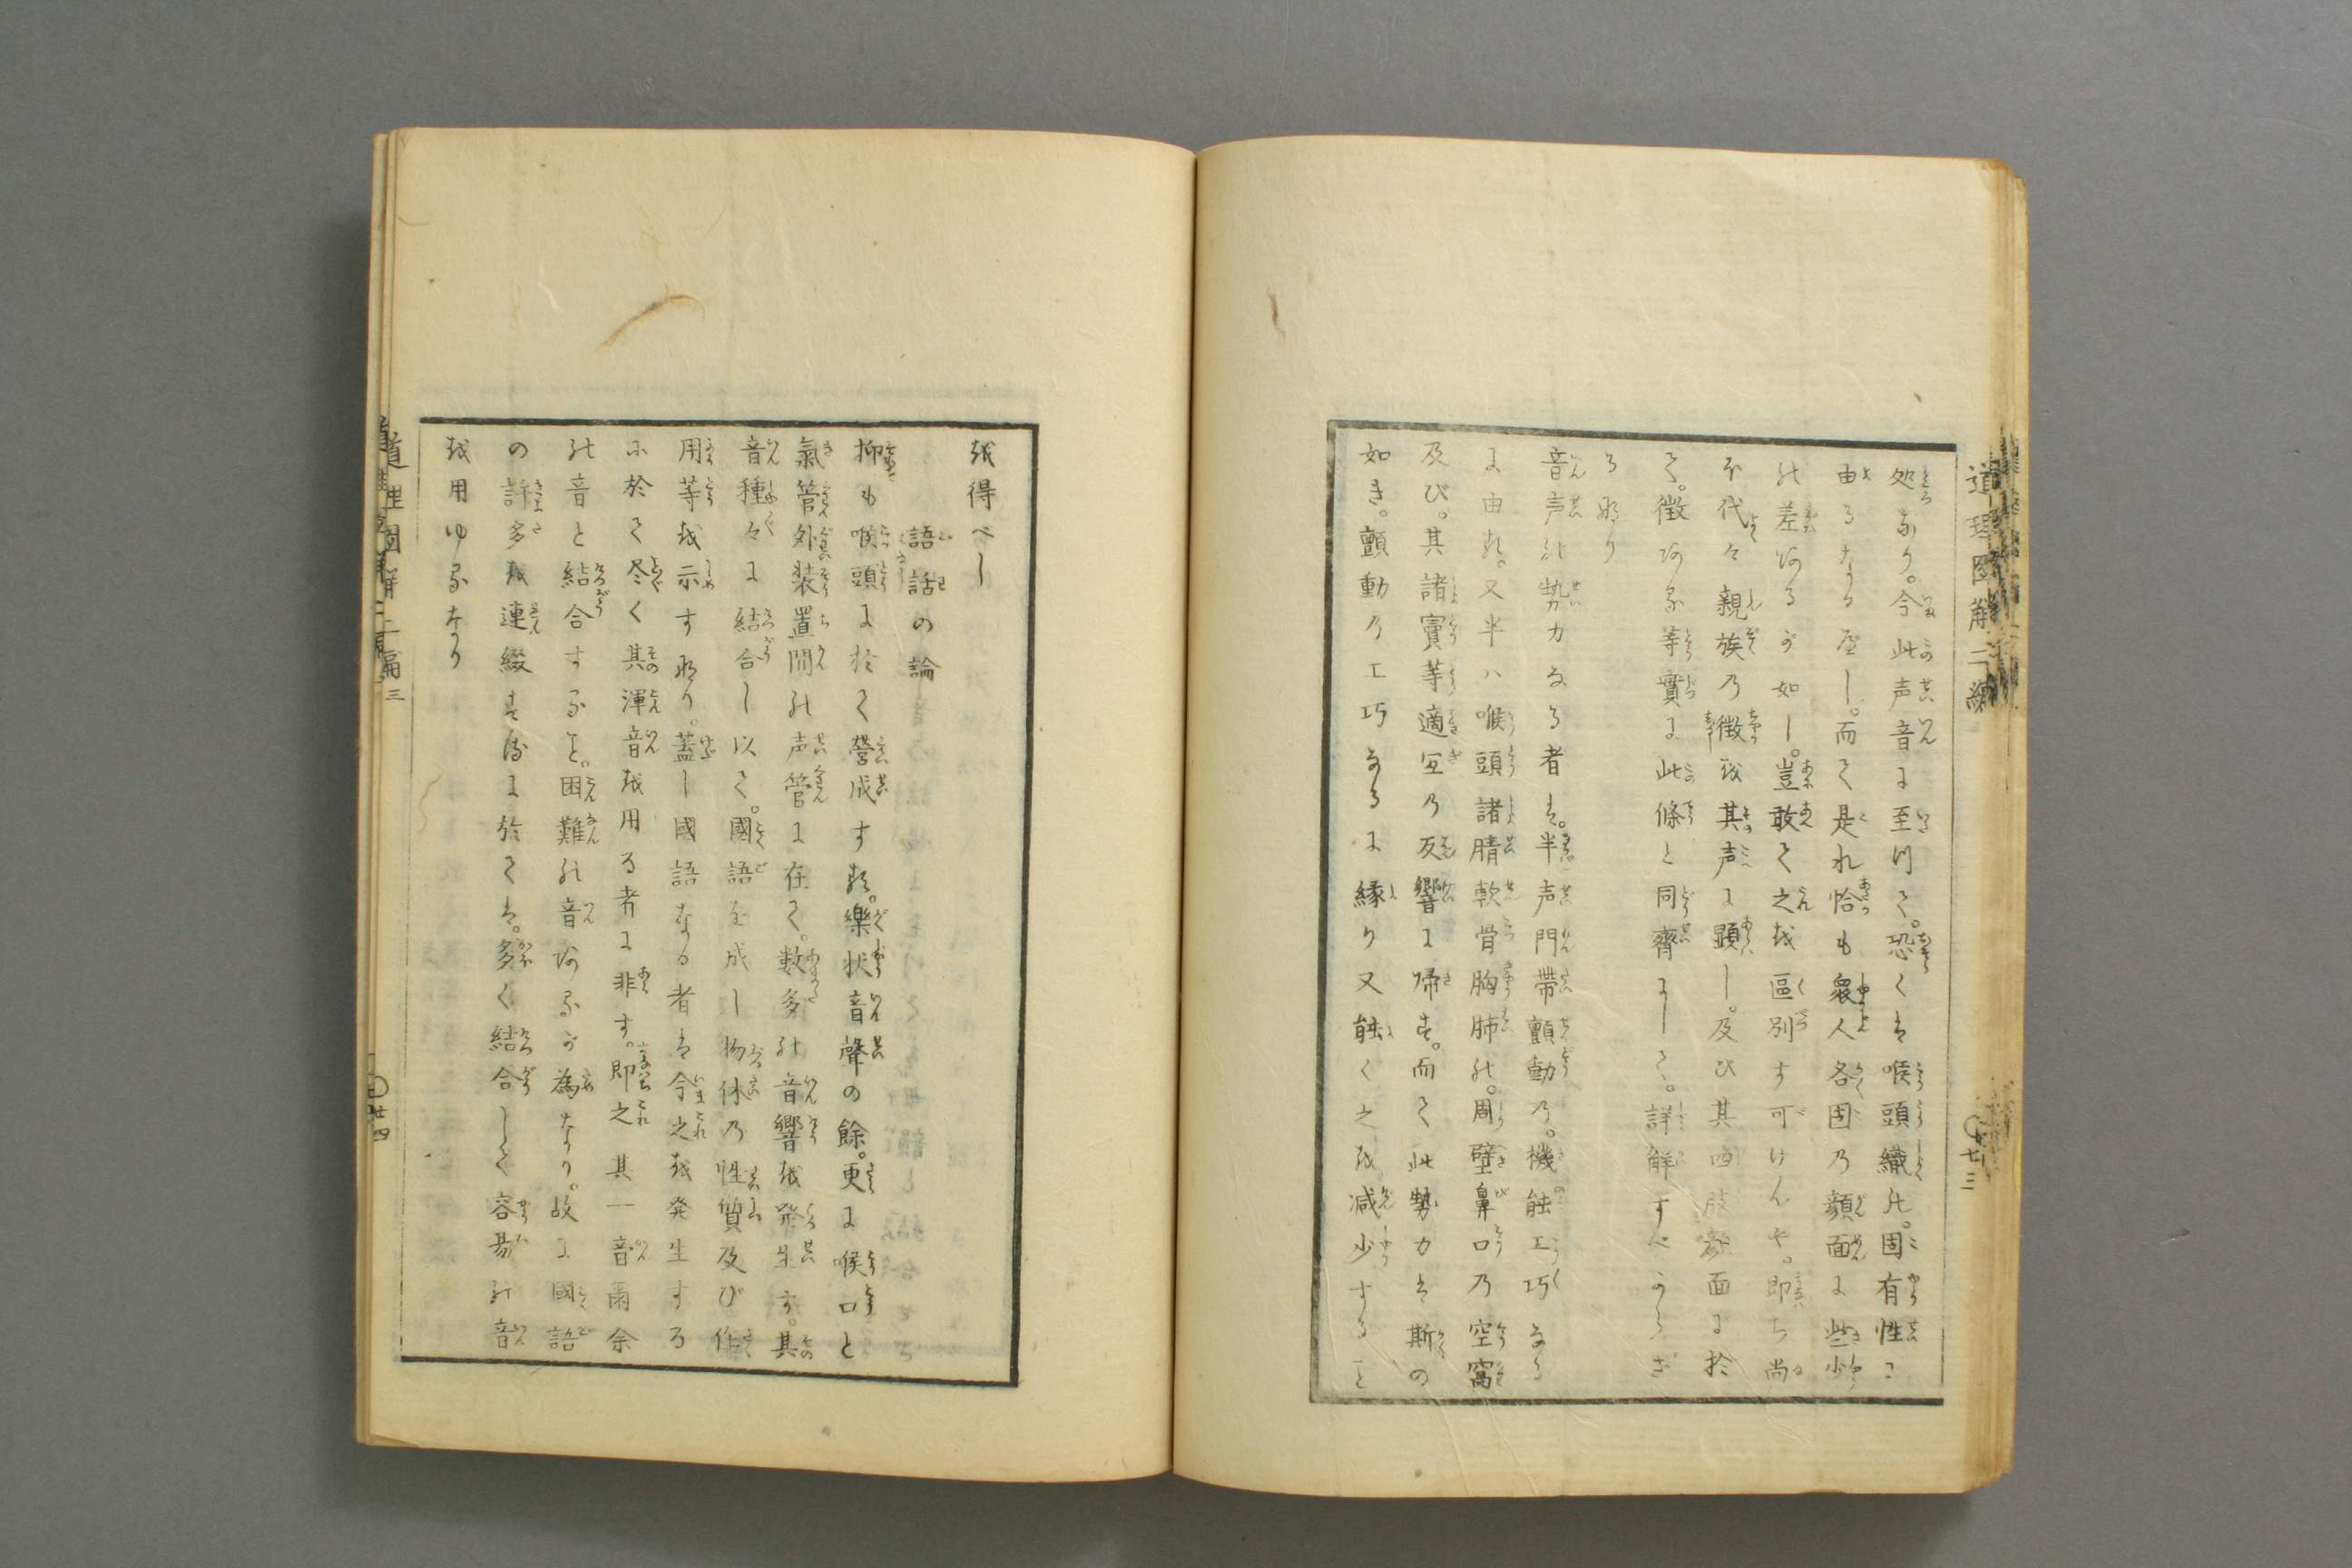 処なり。今此声音に至つて。恐くは喉頭織の。固有性に
由るなる歴し。而て是れ恰も衆人各固の顔面に些少
の差あるが如し。豈敢て之を區別す可けんや。即ち尚
ほ代々親族の徴を其声に顕し。及び其四肢顔面に於
て。徴ある等實に此條と同齊にして。詳解すべからざ
る那り
音声の勢力なる者は。半声門帯顫動の。機能工巧なる
に由る。又半ハ喉頭諸腈軟骨胸肺の。周壁鼻口の空窩
及び。其諸竇等適宜の反響に帰す。而て此勢力は斯の
如き。顫動の工巧なるに縁り又能く之を減少すると
を得べし
語話の論
抑も喉頭に於て營成する。樂状音聲の餘。更に喉口と
氣管外装置間の声管に在て。数多の音響を発生す。其
音種々に結合し以て。國語を成し物体の性質及び作
用等を示す那り。蓋し國語なる者は今之を発生する
に於て尽く其渾音を用る者に非す。即之其一音爾余
の音と結合するは。困難の音あるが為なり。故に國語
の許多を連綴するに於ては。多く結合して容易の音
を用ゆるなり
道理図解二編
〇廿三
道理図解二編三
〇廿四